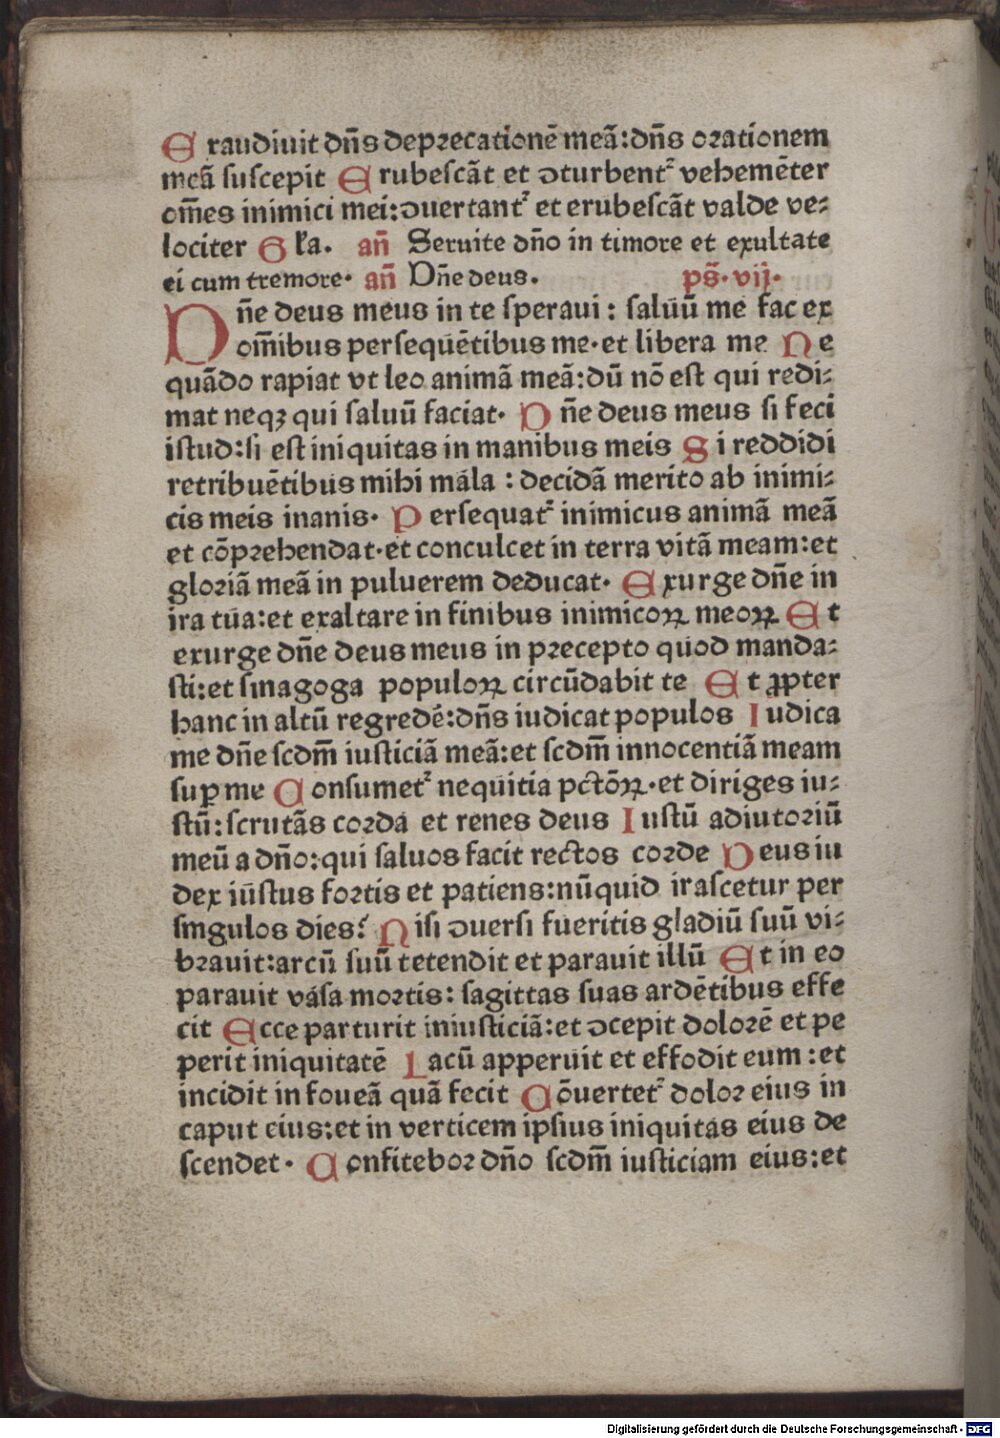 Exaudiuit dn̄s deprecationē meā:dn̄s orationem
meā suscepit Erubescāt et ɔturbentᷣ vehemēter
om̄es inimici mei:ɔuertantᷣ et erubescāt valde ve⸗
lociter Gl'a. an̄ Seruite dn̄o in timore et exultate
ei cum tremore· an̄ Dn̄e deus. ps̄·vij·
Dn̄e deus meus in te speraui : saluū me fac ex
om̄ibus persequētibus me·et libera me Ne
quādo rapiat vt leo animā meā:dū nō est qui redi⸗
mat neqꝫ qui saluū faciat· Dn̄e deus meus si feci
istud:si est iniquitas in manibus meis Si reddidi
retribuētibus mihi mala : decidā merito ab inimi⸗
cis meis inanis· Persequatᷣ inimicus animā meā
et cōprehendat·et conculcet in terra vitā meam:et
gloriā meā in puluerem deducat· Exurge dn̄e in
ira tua:et exaltare in finibus inimicoꝝ meoꝝ Et
exurge dn̄e deus meus in precepto quod manda⸗
sti:et sinagoga populoꝝ circūdabit te Et ꝓpter
hanc in altū regredē:dn̄s iudicat populos Iudica
me dn̄e scdm̄ iusticiā meā:et scdm̄ innocentiā meam
suꝑ me Consumetᷣ nequitia pctōꝝ·et diriges iu⸗
stū:scrutās corda et renes deus Iustū adiutoriū
meū a dn̄o:qui saluos facit rectos corde Deus iu
dex iustus fortis et patiens:nūquid irascetur per
singulos dies? Nisi ɔuersi fueritis gladiū suū vi⸗
brauit:arcū suū tetendit et parauit illū Et in eo
parauit vasa mortis: sagittas suas ardētibus effe
cit Ecce parturit iniusticiā:et ɔcepit dolorē et pe
perit iniquitatē Lacū apperuit et effodit eum :et
incidit in foueā quā fecit Cōuertetᷣ dolor eius in
caput eius:et in verticem ipsius iniquitas eius de
scendet· Confitebor dn̄o scdm̄ iusticiam eius:et
Digitalisierung gefördert durch die Deutsche Forschungsgemeinschaft - DFG